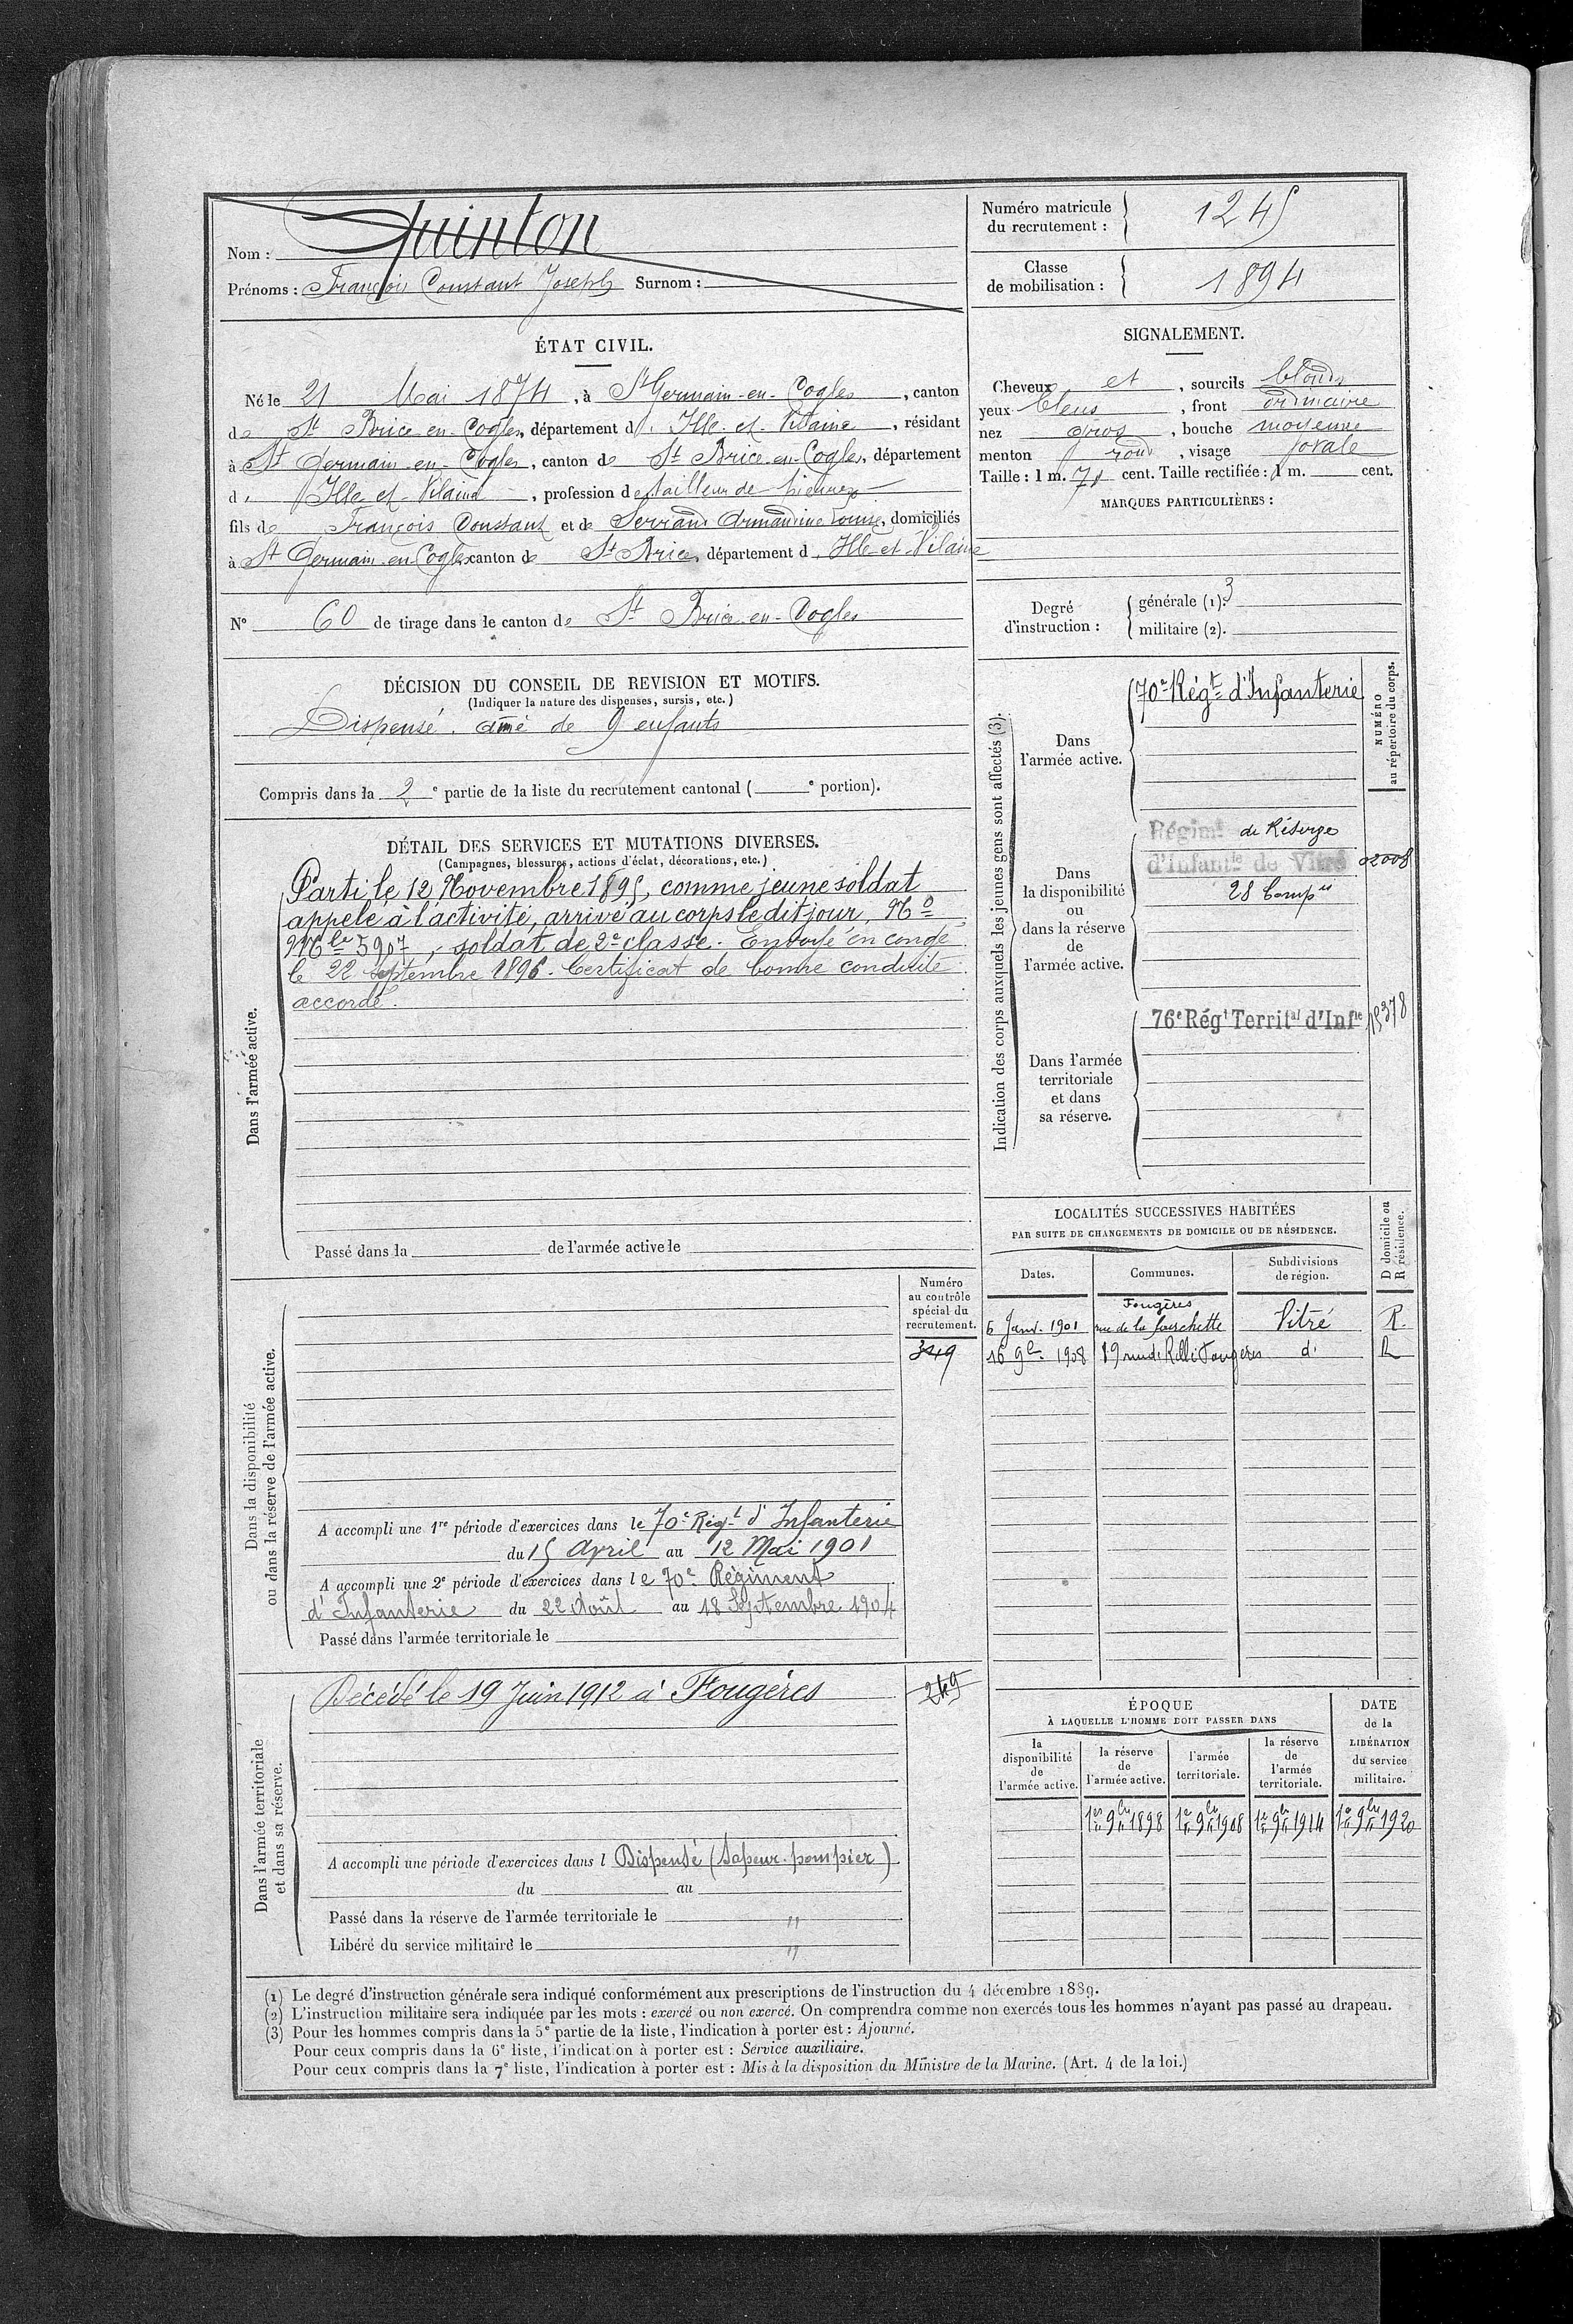 Nom : Quinton
Prénoms : François Constant Joseph Surnom :
Numéro matricule du recrutement : 1245
Classe de mobilisation : 1894
ÉTAT CIVIL.
Né le 21 Mai 1874, à St Germain-en-Cogles, canton
de St Brice-en-Cogles, département d' Ille-et-Vilaine, résidant
à St Germain-en-Cogles, canton de St Brice-en-Cogles, département
d' Ille et Vilaine, profession de tailleur de pierres
fils de François Constant et de Serrand Armandine Louise, domiciliés
à St Germain-en-Cogles canton de St Brice, département d' Ille-et-Vilaine
N° 60 de tirage dans le canton de St Brice-en-Cogles
SIGNALEMENT.
Cheveux et, sourcils blonds
yeux bleus, front ordinaire
nez gros, bouche moyenne
menton rond, visage ovale
Taille : 1 m. 71 cent. Taille rectifiée : 1 m. cent.
MARQUES PARTICULIÈRES :
Degré d'instruction : générale (1). 3
militaire (2).
DÉCISION DU CONSEIL DE REVISION ET MOTIFS.
(Indiquer la nature des dispenses, sursis, etc.)
Dispensé. aîné de 9 enfants
Compris dans la 2e partie de la liste du recrutement cantonal ( e portion).
DÉTAIL DES SERVICES ET MUTATIONS DIVERSES.
(Campagnes, blessures, actions d'éclat, décorations, etc.)
Dans l'armée active.
Parti le 12 Novembre 1895, comme jeune soldat
appelé à l'activité, arrivé au corps le dit jour, No
Mle 5907, soldat de 2e classe. Envoyé en congé
le 22 Septembre 1896. Certificat de bonne conduite
accordé.
Passé dans la de l'armée active le
Indication des corps auxquels les jeunes gens sont affectés (3).
NUMÉRO au répertoire du corps.
Dans l'armée active.
70e Régt d'Infanterie
Dans la disponibilité ou dans la réserve de l'armée active.
Régimt de Réserve
d'Infantie de Vitré 02008
28 Compie
Dans l'armée territoriale et dans sa réserve.
76e Régt Territal d'Infie 15378
LOCALITÉS SUCCESSIVES HABITÉES
PAR SUITE DE CHANGEMENTS DE DOMICILE OU DE RÉSIDENCE.
Dates. Communes. Subdivisions de région. D domicile ou R résidence.
Fougères
6 Janv. 1901 rue de la fourchette Vitré R.
16 9bre 1908 19 rue de Rillé Fougères do R
Dans la disponibilité ou dans la réserve de l'armée active.
Numéro au contrôle spécial du recrutement.
349
A accompli une 1re période d'exercices dans le 70e Régt d'Infanterie
du 15 Avril au 12 Mai 1901
A accompli une 2e période d'exercices dans le 70e Régiment
d'Infanterie du 22 Août au 18 Septembre 1904
Passé dans l'armée territoriale le
Dans l'armée territoriale et dans sa réserve.
Décédé le 19 Juin 1912 à Fougères 249
A accompli une période d'exercices dans l Dispensé (Sapeur-pompier)
du au
Passé dans la réserve de l'armée territoriale le "
Libéré du service militaire le "
ÉPOQUE
À LAQUELLE L'HOMME DOIT PASSER DANS
la disponibilité de l'armée active. la réserve de l'armée active. l'armée territoriale. la réserve de l'armée territoriale. DATE de la LIBÉRATION du service militaire.
1er 9bre 1898 1er 9bre 1908 1er 9bre 1914 1er 9bre 1920
(1) Le degré d'instruction générale sera indiqué conformément aux prescriptions de l'instruction du 4 décembre 1889.
(2) L'instruction militaire sera indiquée par les mots : exercé ou non exercé. On comprendra comme non exercés tous les hommes n'ayant pas passé au drapeau.
(3) Pour les hommes compris dans la 5e partie de la liste, l'indication à porter est : Ajourné.
Pour ceux compris dans la 6e liste, l'indication à porter est : Service auxiliaire.
Pour ceux compris dans la 7e liste, l'indication à porter est : Mis à la disposition du Ministre de la Marine. (Art. 4 de la loi.)